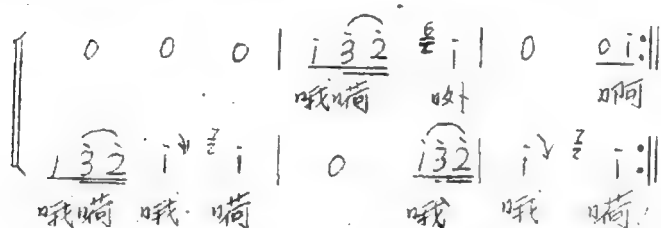 0 0 0 | i 3 2 i | 0 0 i :||
哦嗬 吙 啊
i 3 2 i i | 0 i 3 2 | i i :||
哦嗬 哦 嗬 哦 哦 嗬